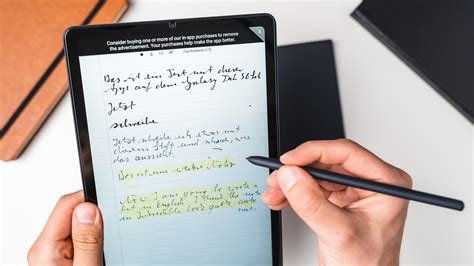 Consider buying one or more of our in-app purchases to remove
the advertisement. Your purchases help make the app better.
Das ist ein Text mit dieser
App auf dem Galaxy Tab S6 lob
Jetzt
schreibe
Jetzt schreibe ich etwas mit
diesem Stift und schaue, wie
das aussieht.
Das ist eine weitere Notiz
Now I am going to write a
in English, I think the
is incredible good quite
me.